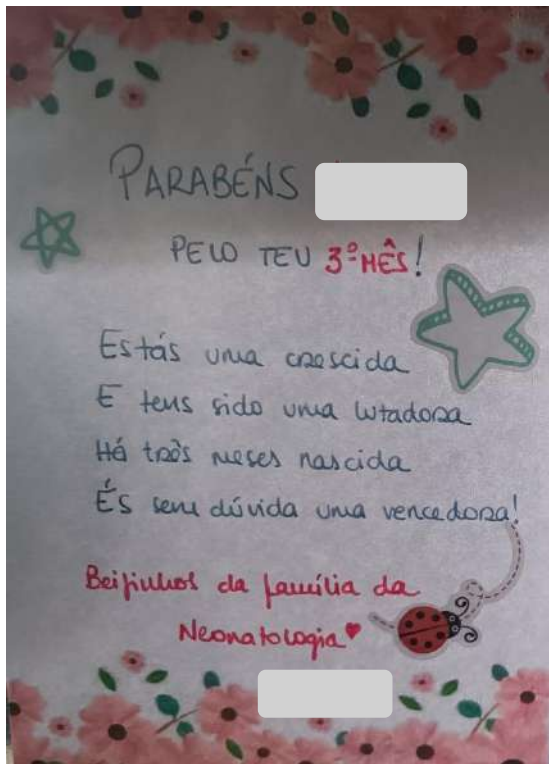 PARABÉNS
PELO TEU 3º MÊS!
Estás uma crescida
E tens sido uma lutadora
Há três meses nascida
És sem dúvida uma vencedora!
Beijinhos da família da
Neonatologia